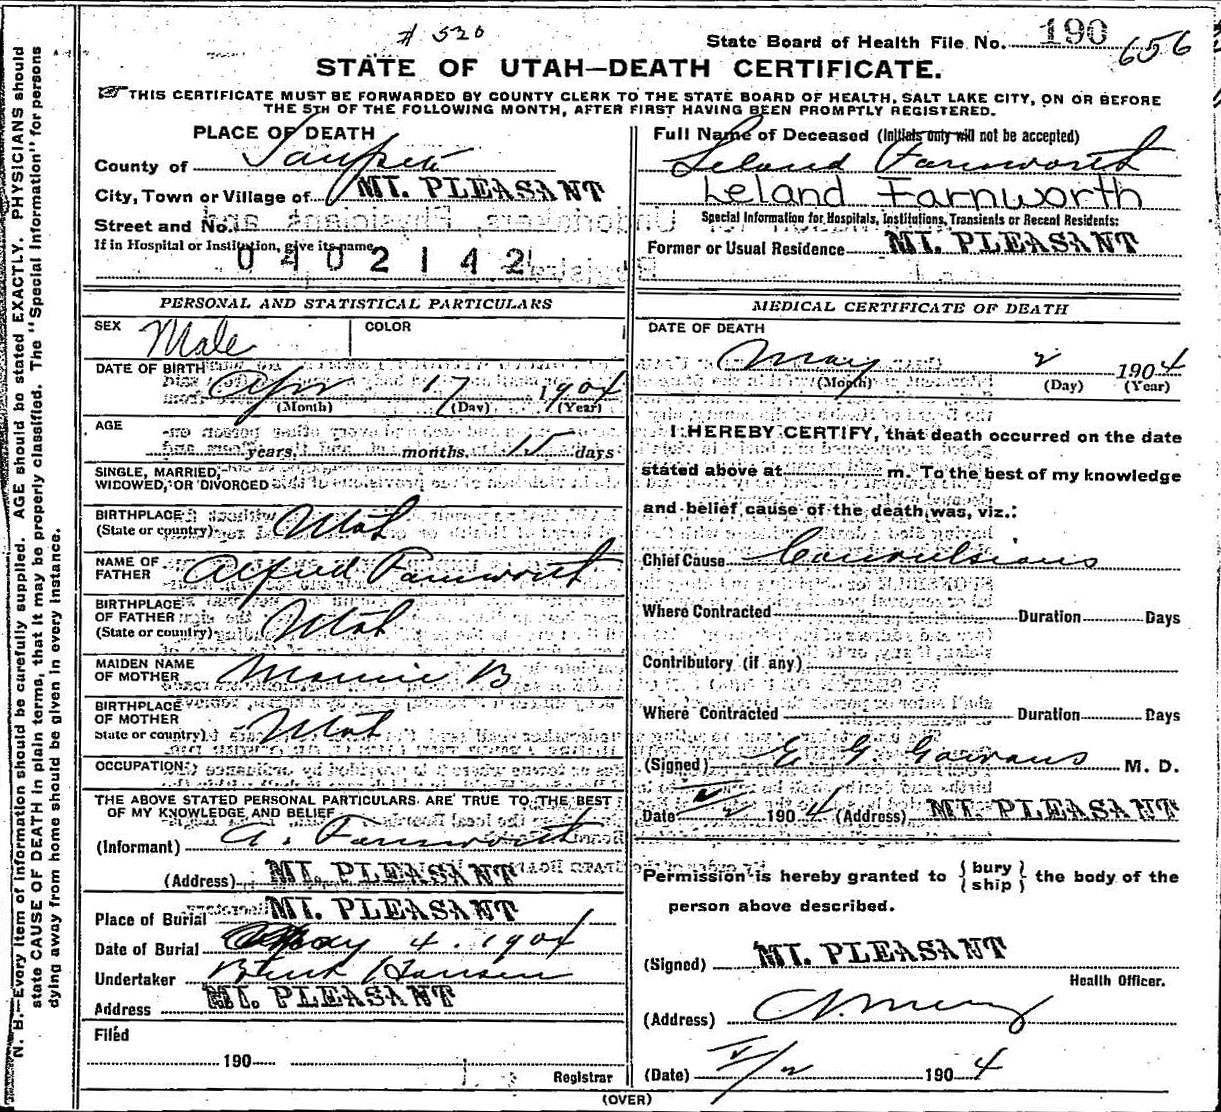 # 520
State Board of Health File No. 190 656
STATE OF UTAH—DEATH CERTIFICATE.
THIS CERTIFICATE MUST BE FORWARDED BY COUNTY CLERK TO THE STATE BOARD OF HEALTH, SALT LAKE CITY, ON OR BEFORE
THE 5TH OF THE FOLLOWING MONTH, AFTER FIRST HAVING BEEN PROMPTLY REGISTERED.
PLACE OF DEATH
County of Sanpete
City, Town or Village of MT. PLEASANT
Street and No.
If in Hospital or Institution, give its name
0402142
Full Name of Deceased (Initials only will not be accepted)
Leland Farnworth
Leland Farnworth
Special Information for Hospitals, Institutions, Transients or Recent Residents:
Former or Usual Residence MT. PLEASANT
PERSONAL AND STATISTICAL PARTICULARS
SEX Male COLOR
DATE OF BIRTH Apr 17 1904
(Month) (Day) (Year)
AGE
years, months. 15 days
SINGLE, MARRIED,
WIDOWED, OR DIVORCED
BIRTHPLACE
(State or country) Utah
NAME OF
FATHER Alfred Farnworth
BIRTHPLACE
OF FATHER
(State or country) Utah
MAIDEN NAME
OF MOTHER Mamie B
BIRTHPLACE
OF MOTHER
State or country) Utah
OCCUPATION
THE ABOVE STATED PERSONAL PARTICULARS ARE TRUE TO THE BEST
OF MY KNOWLEDGE AND BELIEF
(Informant) A. Farnsworth
(Address) MT. PLEASANT
Place of Burial MT. PLEASANT
Date of Burial May 4. 1904
Undertaker Hansen
Address MT. PLEASANT
Filed
190
Registrar
MEDICAL CERTIFICATE OF DEATH
DATE OF DEATH
May 2 1904
(Month) (Day) (Year)
I HEREBY CERTIFY, that death occurred on the date
stated above at m. To the best of my knowledge
and belief cause of the death was, viz.:
Chief Cause Convulsions
Where Contracted Duration Days
Contributory (if any)
Where Contracted Duration Days
(Signed) E G Gowans M. D.
Date V 2 190 4 (Address) MT. PLEASANT
Permission is hereby granted to { bury ship } the body of the
person above described.
(Signed) MT. PLEASANT
Health Officer.
(Address)
(Date) V/2 190 4
(OVER)
N. B.—Every item of information should be carefully supplied. AGE should be stated EXACTLY. PHYSICIANS should
state CAUSE OF DEATH in plain terms, that it may be properly classified. The "Special Information" for persons
dying away from home should be given in every instance.